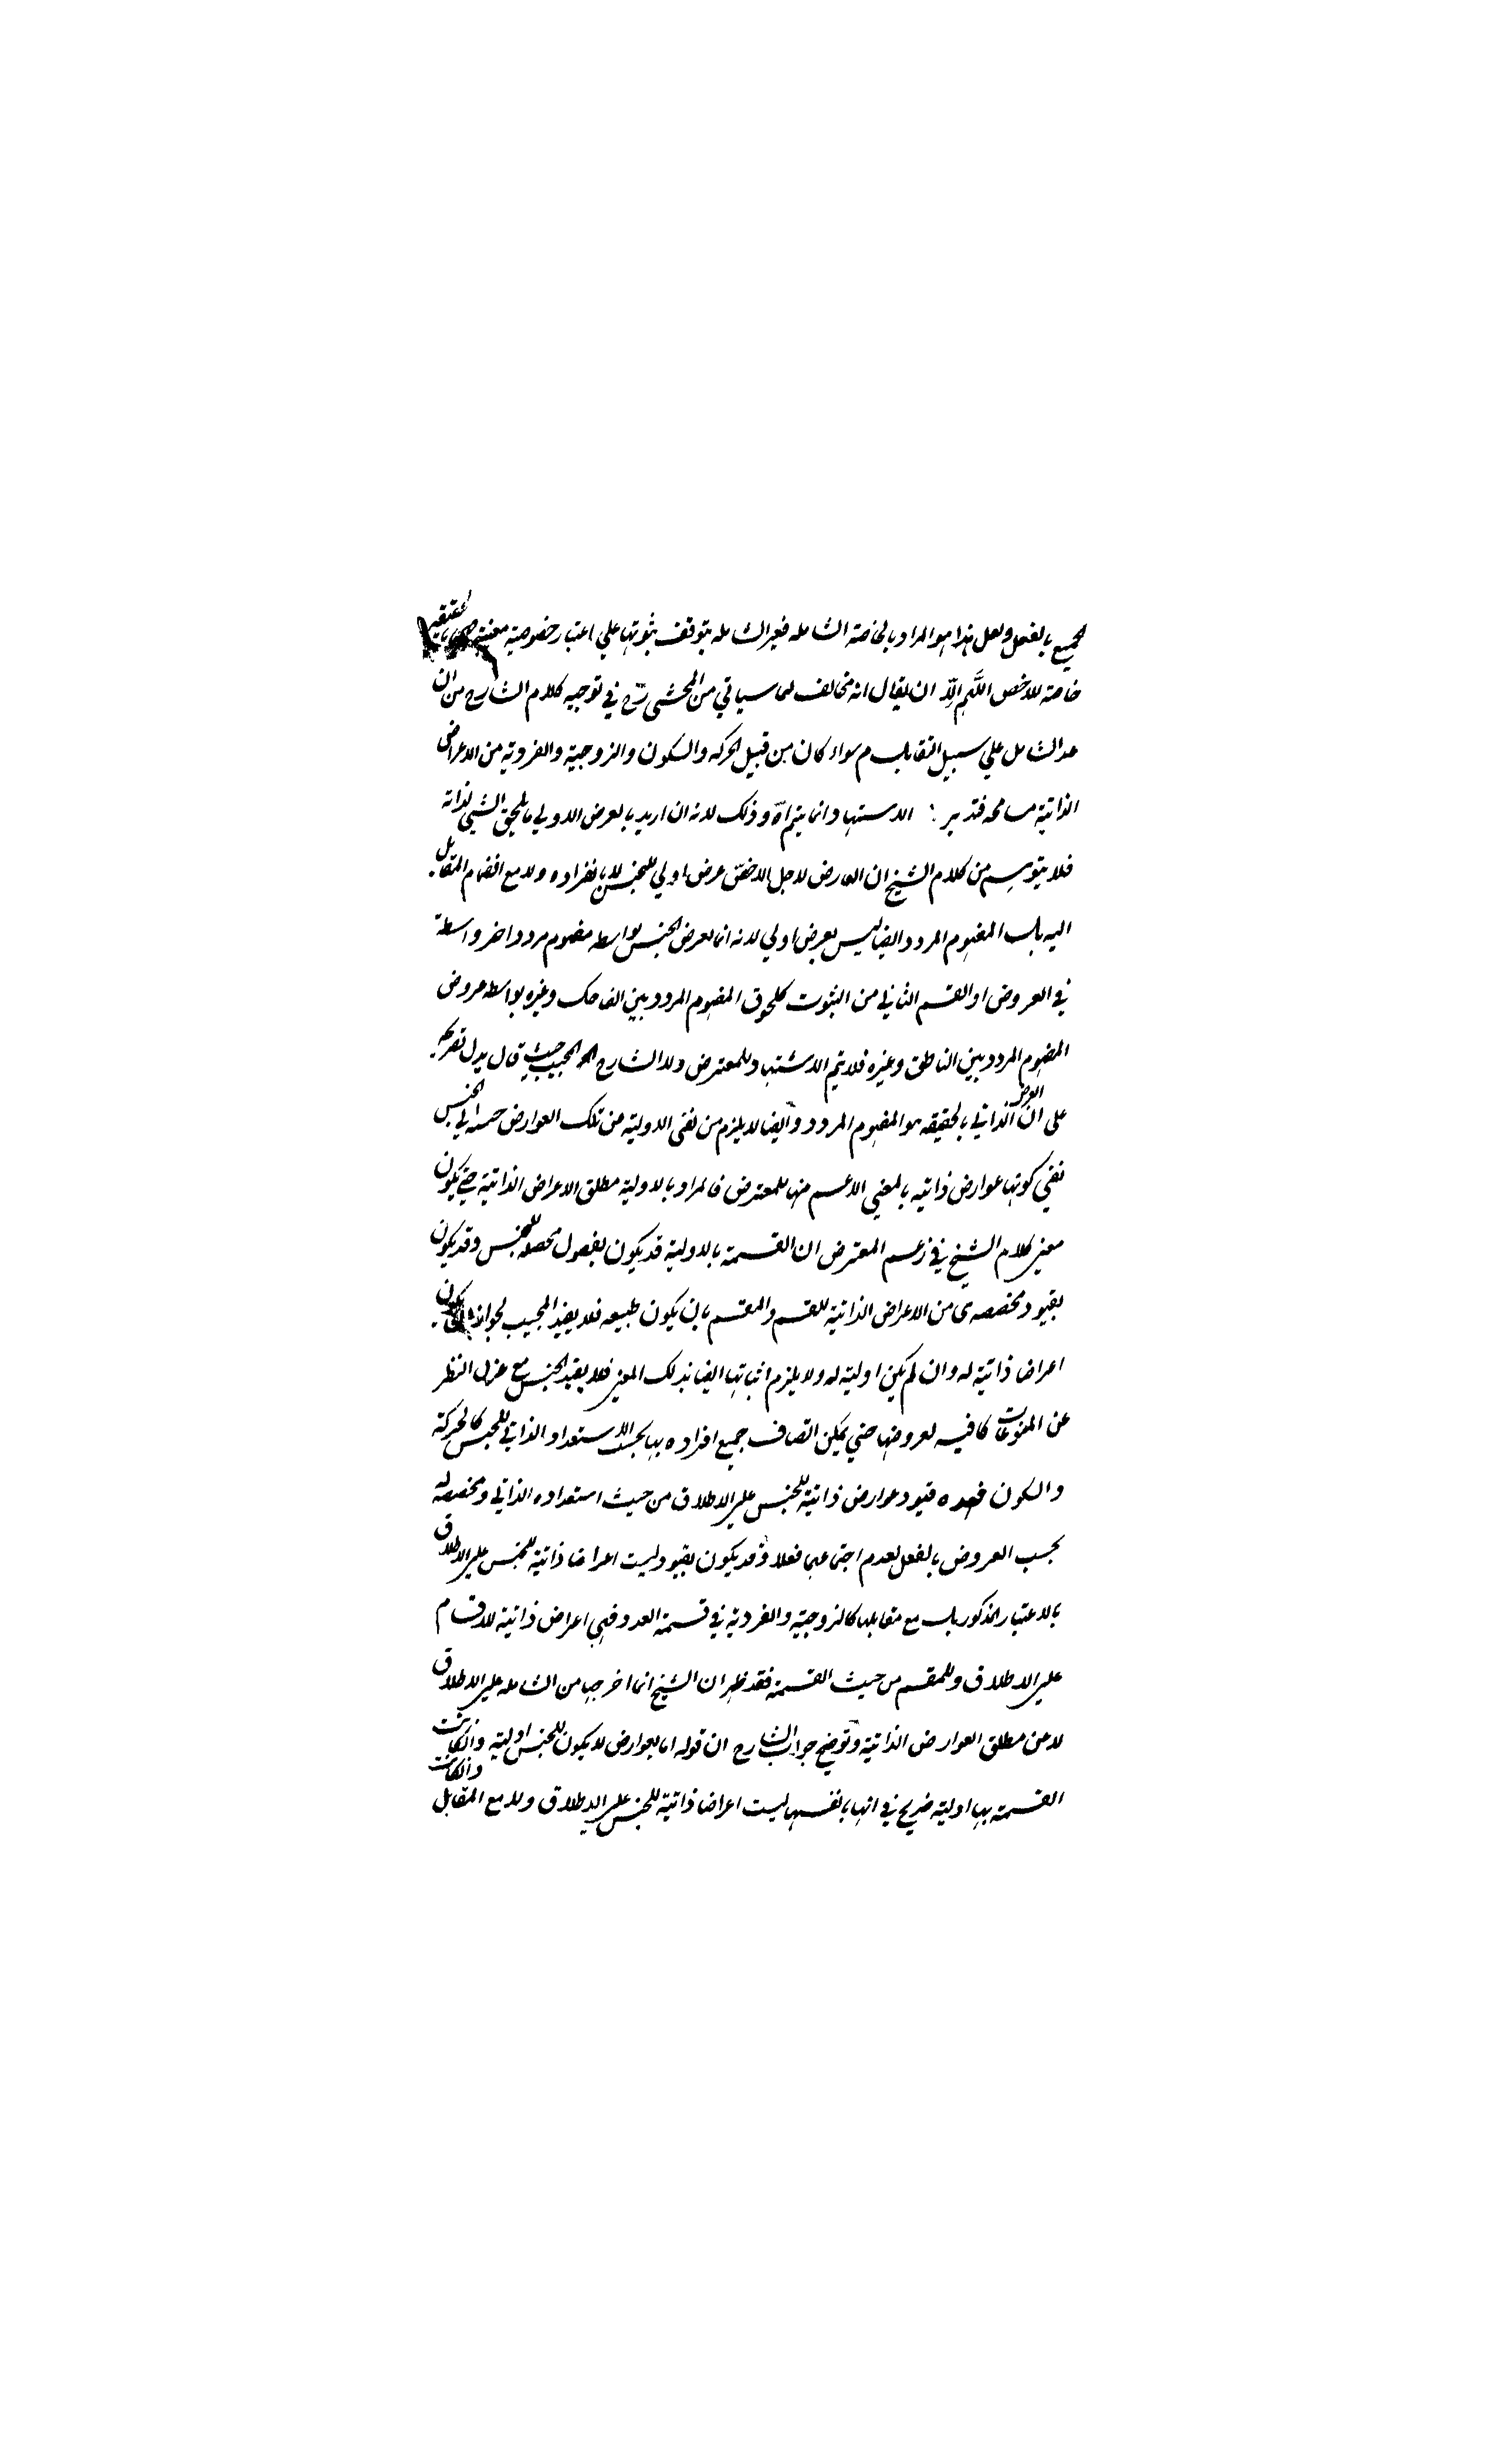 لجميع بالفعل ولعل هذا هو المراد بالخاصة الشاملة فغير الشاملة يتوقف ثبوتها علي اعتبار خصوصية معينة
خاصة للاخص اللّهم الّا ان يقال انه مخالف لما سياتي من المحشي رح في توجيه كلام الشارح من ان
عد الشامل علي سبيل التقابل م سواء كان من قبيل الحركة والسكون والزوجية والفردية من الاعراض
الذاتية مسامحة فتدبر : الاستشهاد انما يتم آه وذلك لانه ان اريد بالعرض الاولي ما يلحق الشيئ لذاته
فلا يتوهم من كلام الشيخ ان العارض لاجل الاخص عرض اولي للجنس لا بانفراده ولا مع انضمام المقابل
اليه بل المفهوم المردد ايضا ليس بعرض اولي لانه انما يعرض الجنس بواسطة مفهوم مردد اخر واسطة
في العروض او القسم الثاني من الثبوت كلحوق المفهوم المردد بين الضاحك وغيره بواسطة عروض
المفهوم المردد بين الناطق وغيره فلا يتم الاستشهاد للمعترض ولا الشارح المجيب حيث قال يدل تصريحه
على ان العرض الذاتي بالحقيقة هو المفهوم المردد وايضا لا يلزم من نفي الاولية من تلك العوارض الي الجنس
نفي كونها عوارض ذاتية بالمعني الاعم منها للمعترض فالمراد بالاولية مطلق الاعراض الذاتية حتي يكون
معني كلام الشيخ في زعم المعترض ان القسمة بالاولية قد يكون بفصول محصلة للجنس وقد يكون
بقيود مخصصة هي من الاعراض الذاتية للقسم والمقسم بان يكون طبيعة فلا يفيد المجيب لجواز ان يكون
اعراضا ذاتية له وان لم يكن اولية له ولا يلزم اثباتها ايضا بذلك المعني فلا يفيد الجنس مع عزل النظر
عن المنوعات كافية لعروضها حتي يمكن اتصاف جميع افراده بها بحسب الاستعداد الذاتي للجنس كالحركة
والسكون فهذه قيود عوارض ذاتية للجنس علي الاطلاق من حيث استعداده الذاتي ومخصصة له
بحسب العروض بالفعل لعدم اجتماعهما فعلا وقد يكون بقيود ليست اعراضا ذاتية للجنس علي الاطلاق
بالاعتبار المذكور بل مع مقابلها كالزوجية والفردية في قسمة العدد فهي اعراض ذاتية للاقسام
علي الاطلاق وللمقسم من حيث القسمة فقد ظهر ان الشيخ انما اخرجها من الشاملة علي الاطلاق
لا من مطلق العوارض الذاتية وتوضيح جواب الشارح ان قوله اما بعوارض لا يكون للجنس اولية وان كانت
القسمة بها اولية صريح في انها بانفسها ليست اعراضا ذاتية للجنس علي الاطلاق ولا مع المقابل